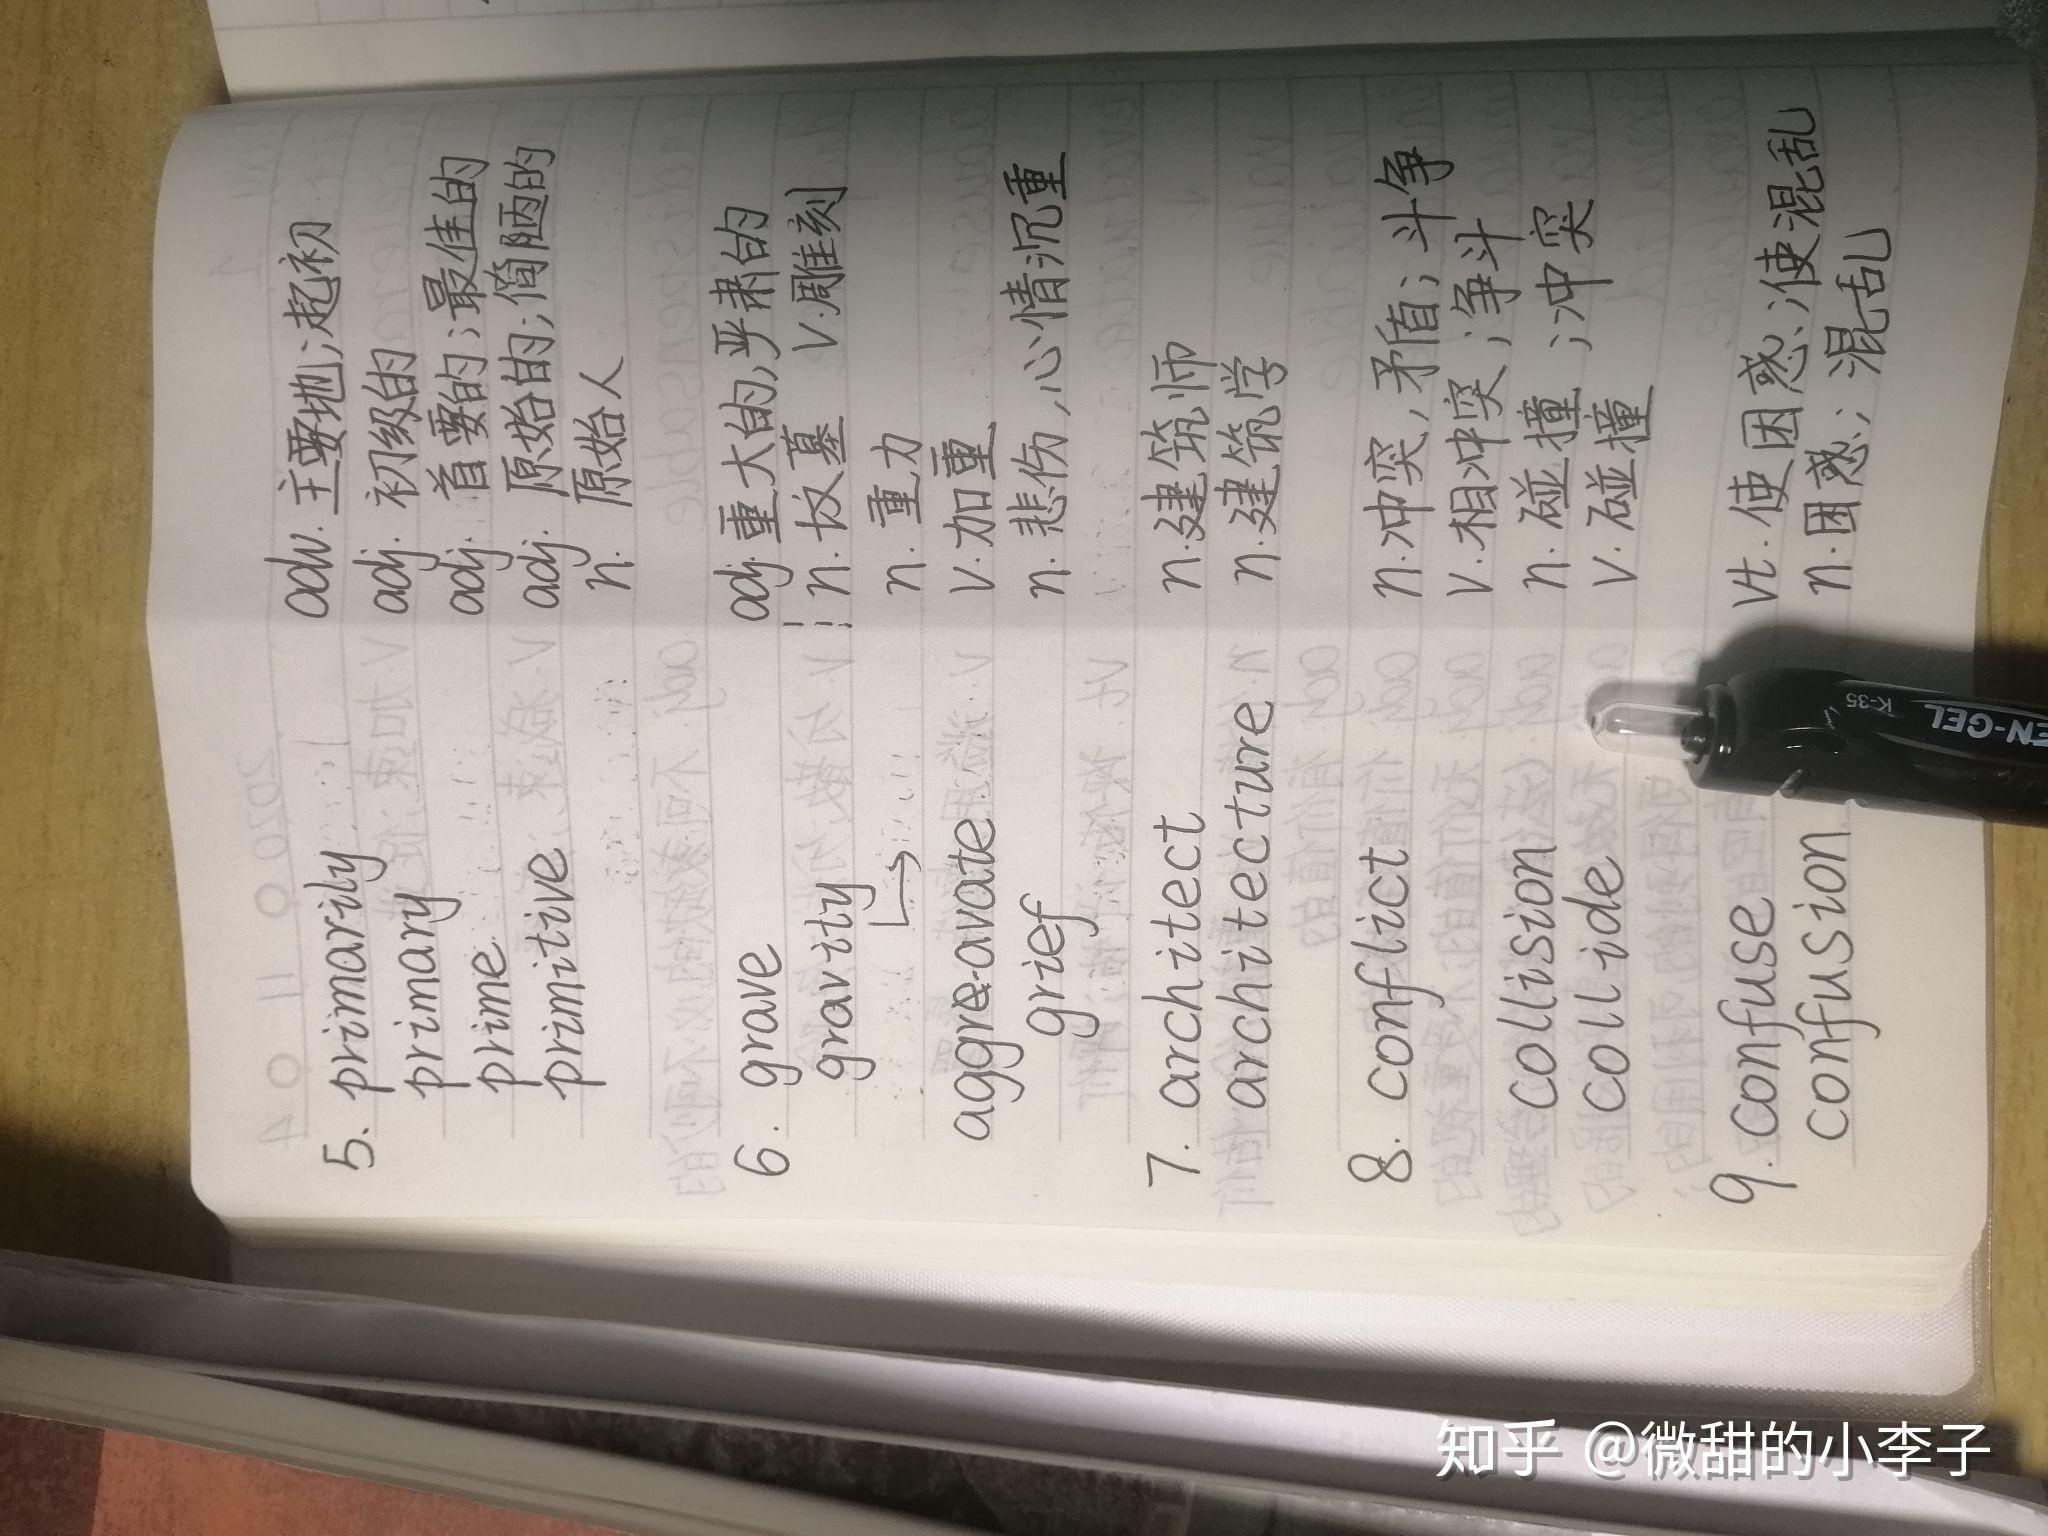 5. primarily adv. 主要地;起初
primary adj. 初级的
prime adj. 首要的;最佳的
primitive adj. 原始的;简陋的
n. 原始人
6. grave adj. 重大的,严肃的
n. 坟墓 v. 雕刻
gravity n. 重力
aggravate v. 加重
grief n. 悲伤,心情沉重
7. architect n. 建筑师
architecture n. 建筑学
8. conflict n. 冲突,矛盾;斗争
v. 相冲突;争斗
collision n. 碰撞;冲突
collide v. 碰撞
9. confuse vt. 使困惑;使混乱
confusion n. 困惑;混乱
K-35
EN-GEL
知乎 @微甜的小李子